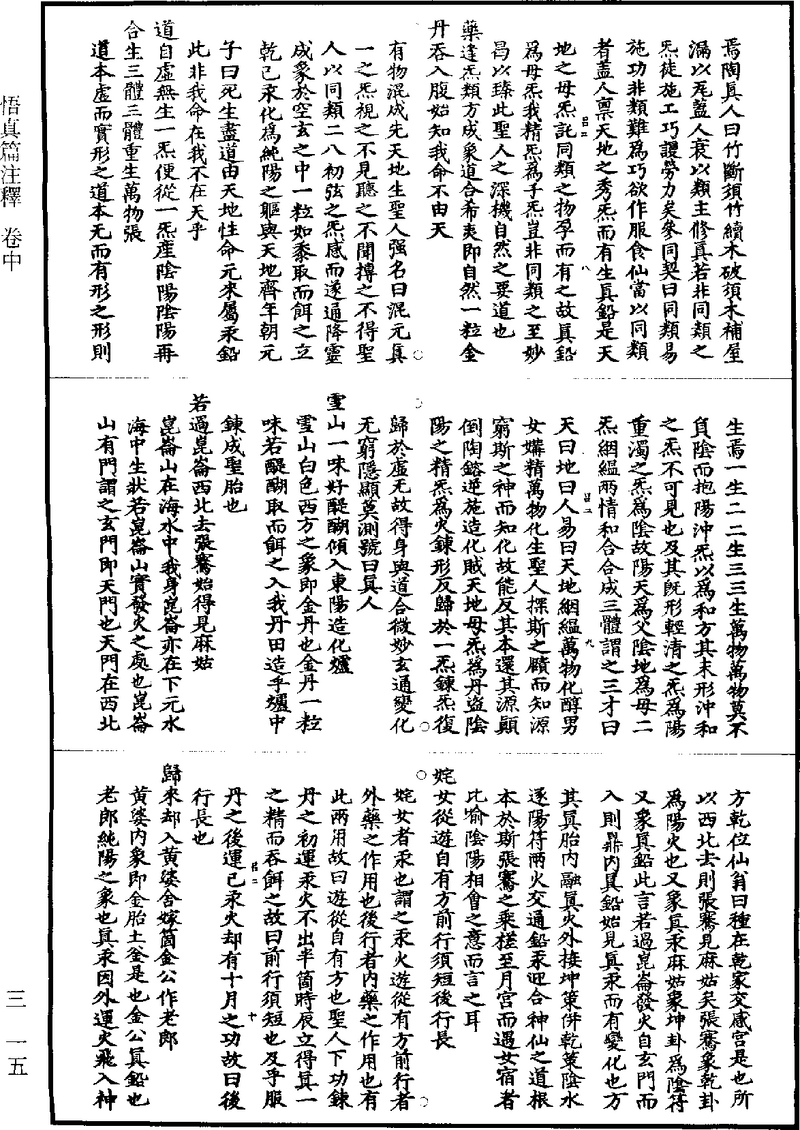 焉陶真人曰竹斷須竹續木破須木補屋
漏以瓦蓋人衰以類主修真若非同類之
炁徒施工巧謾勞力矣參同契曰同類易
施功非類難為巧欲作服食仙當以同類
者蓋人稟天地之秀炁而有生真鉛是天
地之母炁託同類之物孕而有之故真鉛
為母炁我精炁為子炁豈非同類之至妙
昌以臻此聖人之深機自然之要道也
藥逢炁類方成象道合希夷即自然一粒金
丹吞入腹始知我命不由天
有物混成先天地生聖人强名曰混元真
一之炁視之不見聽之不聞摶之不得聖
人以同類二八初弦之炁感而遂通降靈
成象於空玄之中一粒如黍取而餌之立
乾己汞化為純陽之軀與天地齊年朝元
子曰死生盡道由天地性命元來屬汞鉛
此非我命在我不在天乎
道自虛無生一炁便從一炁產陰陽陰陽再
合生三體三體重生萬物張
道本虛而實形之道本无而有形之形則
生焉一生二二生三三生萬物萬物莫不
負陰而抱陽沖炁以為和方其未形沖和
之炁不可見也及其既形輕清之炁為陽
重濁之炁為陰故陽天為父陰地為母二
炁絪緼兩情和合合成三體謂之三才曰
天曰地曰人易曰天地絪緼萬物化醇男
女媾精萬物化生聖人探斯之賾而知源
窮斯之神而知化故能反其本還其源顛
倒陶鎔逆施造化賊天地母炁為丹盜陰
陽之精炁為火鍊形反歸於一炁鍊炁復
歸於虛无故得身與道合微妙玄通變化
无窮隱顯莫測號曰真人
雪山一味好醍醐傾入東陽造化爐
雪山白色西方之象即金丹也金丹一粒
味若醍醐取而餌之入我丹田造乎爐中
鍊成聖胎也
若過崑崙西北去張騫始得見麻姑
崑崙山在海水中我身崑崙亦在下元水
海中生狀若崑崙山實發火之處也崑崙
山有門謂之玄門即天門也天門在西北
方乾位仙翁曰種在乾家交感宮是也所
以西北去則張騫見麻姑矣張騫象乾卦
為陽火也又象真汞麻姑象坤卦為陰符
又象真鉛此言若過崑崙發火自玄門而
入則鼎內真鉛始見真汞而有變化也方
其真胎內融真火外接坤策併乾策陰水
逐陽符兩火交通鉛汞迎合神仙之道根
本於斯張騫之乘槎至月宮而遇女宿者
比喻陰陽相會之意而言之耳
姹女從遊自有方前行須短後行長
姹女者汞也謂之汞火遊從有方前行者
外藥之作用也後行者內藥之作用也有
此兩用故曰遊從自有方也聖人下功鍊
丹之初運汞火不出半箇時辰立得真一
之精而吞餌之故曰前行須短也及乎服
丹之後運己汞火却有十月之功故曰後
行長也
歸來却入黃婆舍嫁箇金公作老郎
黃婆內象即金胎土釜是也金公真鉛也
老郎純陽之象也真汞因外運火飛入神
悟真篇注釋 卷中
三 一五